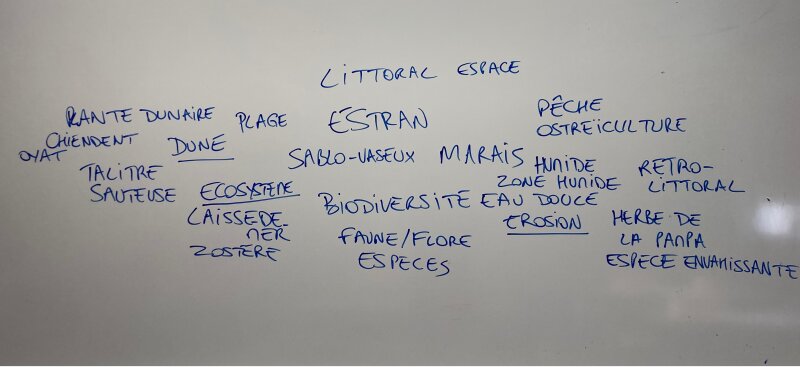 LITTORAL ESPACE
PLANTE DUNAIRE
PLAGE
ESTRAN
PÊCHE
OSTREÏCULTURE
CHIENDENT
OYAT
DUNE
SABLO-VASEUX
MARAIS
HUMIDE
ZONE HUMIDE
RETRO-
LITTORAL
TALITRE
SAUTEUSE
ECOSYSTEME
BIODIVERSITE
EAU DOUCE
LAISSE DE
MER
ZOSTÈRE
FAUNE/FLORE
ESPECES
EROSION
HERBE DE
LA PAMPA
ESPECE ENVAHISSANTE